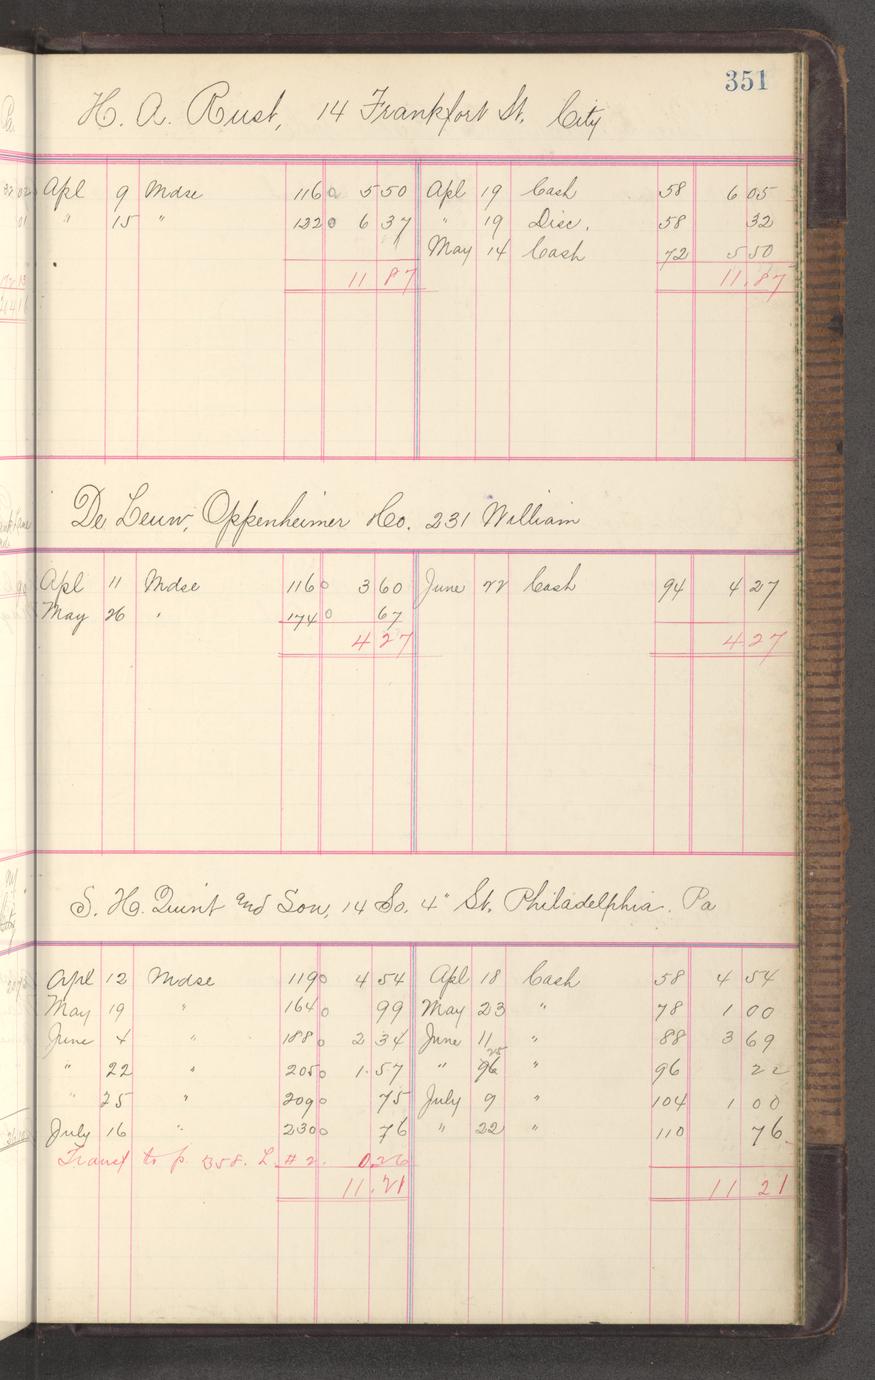 351
H. A. Rust, 14 Frankfort St. City
Apl 9 Mdse 116 0 5 50 Apl 19 Cash 58 6 05
" 15 " 122 0 6 37 " 19 Disc. 58 32
May 14 Cash 72 5 50
11 87 11.87
De Leuw, Oppenheimer & Co. 231 William
Apl 11 Mdse 116 0 3 60 June 22 Cash 94 4 27
May 26 " 174 0 67
4 27 4 27
S. H. Quint and Son, 14 So. 4" St. Philadelphia. Pa
Apl 12 Mdse 119 0 4 54 Apl 18 Cash 58 4 54
May 19 " 164 0 99 May 23 " 78 1 00
June 4 " 188 0 2 34 June 11 " 88 3 69
" 22 " 205 0 1.57 " 25 " 96 22
" 25 " 209 0 75 July 9 " 104 1 00
July 16 " 230 0 76 " 22 " 110 76
Transf to p. 358. L. #2. 0.26
11.21 11 21